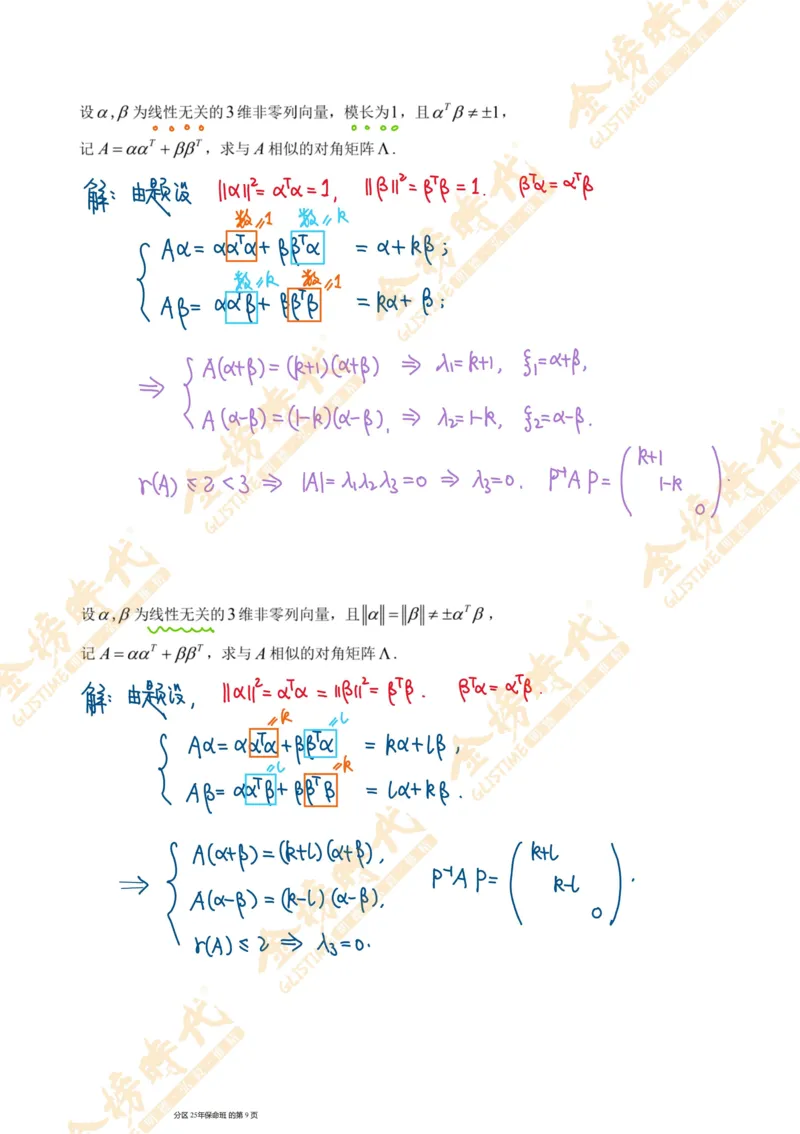 设α,β为线性无关的3维非零列向量，模长为1，且αᵀβ≠±1，
记A=ααᵀ+ββᵀ，求与A相似的对角矩阵Λ.
解：由题设 ||α||²=αᵀα=1, ||β||²=βᵀβ=1. βᵀα=αᵀβ
数=1 数=k
Aα=ααᵀα+ββᵀα =α+kβ;
数=k 数=1
Aβ=ααᵀβ+ββᵀβ =kα+β;
⇒ { A(α+β)=(k+1)(α+β) ⇒ λ₁=k+1, ξ₁=α+β,
A(α-β)=(1-k)(α-β), ⇒ λ₂=1-k, ξ₂=α-β.
r(A)≤2<3 ⇒ |A|=λ₁λ₂λ₃=0 ⇒ λ₃=0. P⁻¹AP=(k+1 1-k 0).
设α,β为线性无关的3维非零列向量，且||α||=||β||≠±αᵀβ，
记A=ααᵀ+ββᵀ，求与A相似的对角矩阵Λ.
解：由题设, ||α||²=αᵀα=||β||²=βᵀβ. βᵀα=αᵀβ.
=k =l
Aα=ααᵀα+ββᵀα =kα+lβ,
=l =k
Aβ=ααᵀβ+ββᵀβ =lα+kβ.
⇒ { A(α+β)=(k+l)(α+β),
A(α-β)=(k-l)(α-β).
r(A)≤2 ⇒ λ₃=0.
P⁻¹AP=(k+l k-l 0).
金榜時代
GLISTIME
分区 25年保命班 的第 9 页